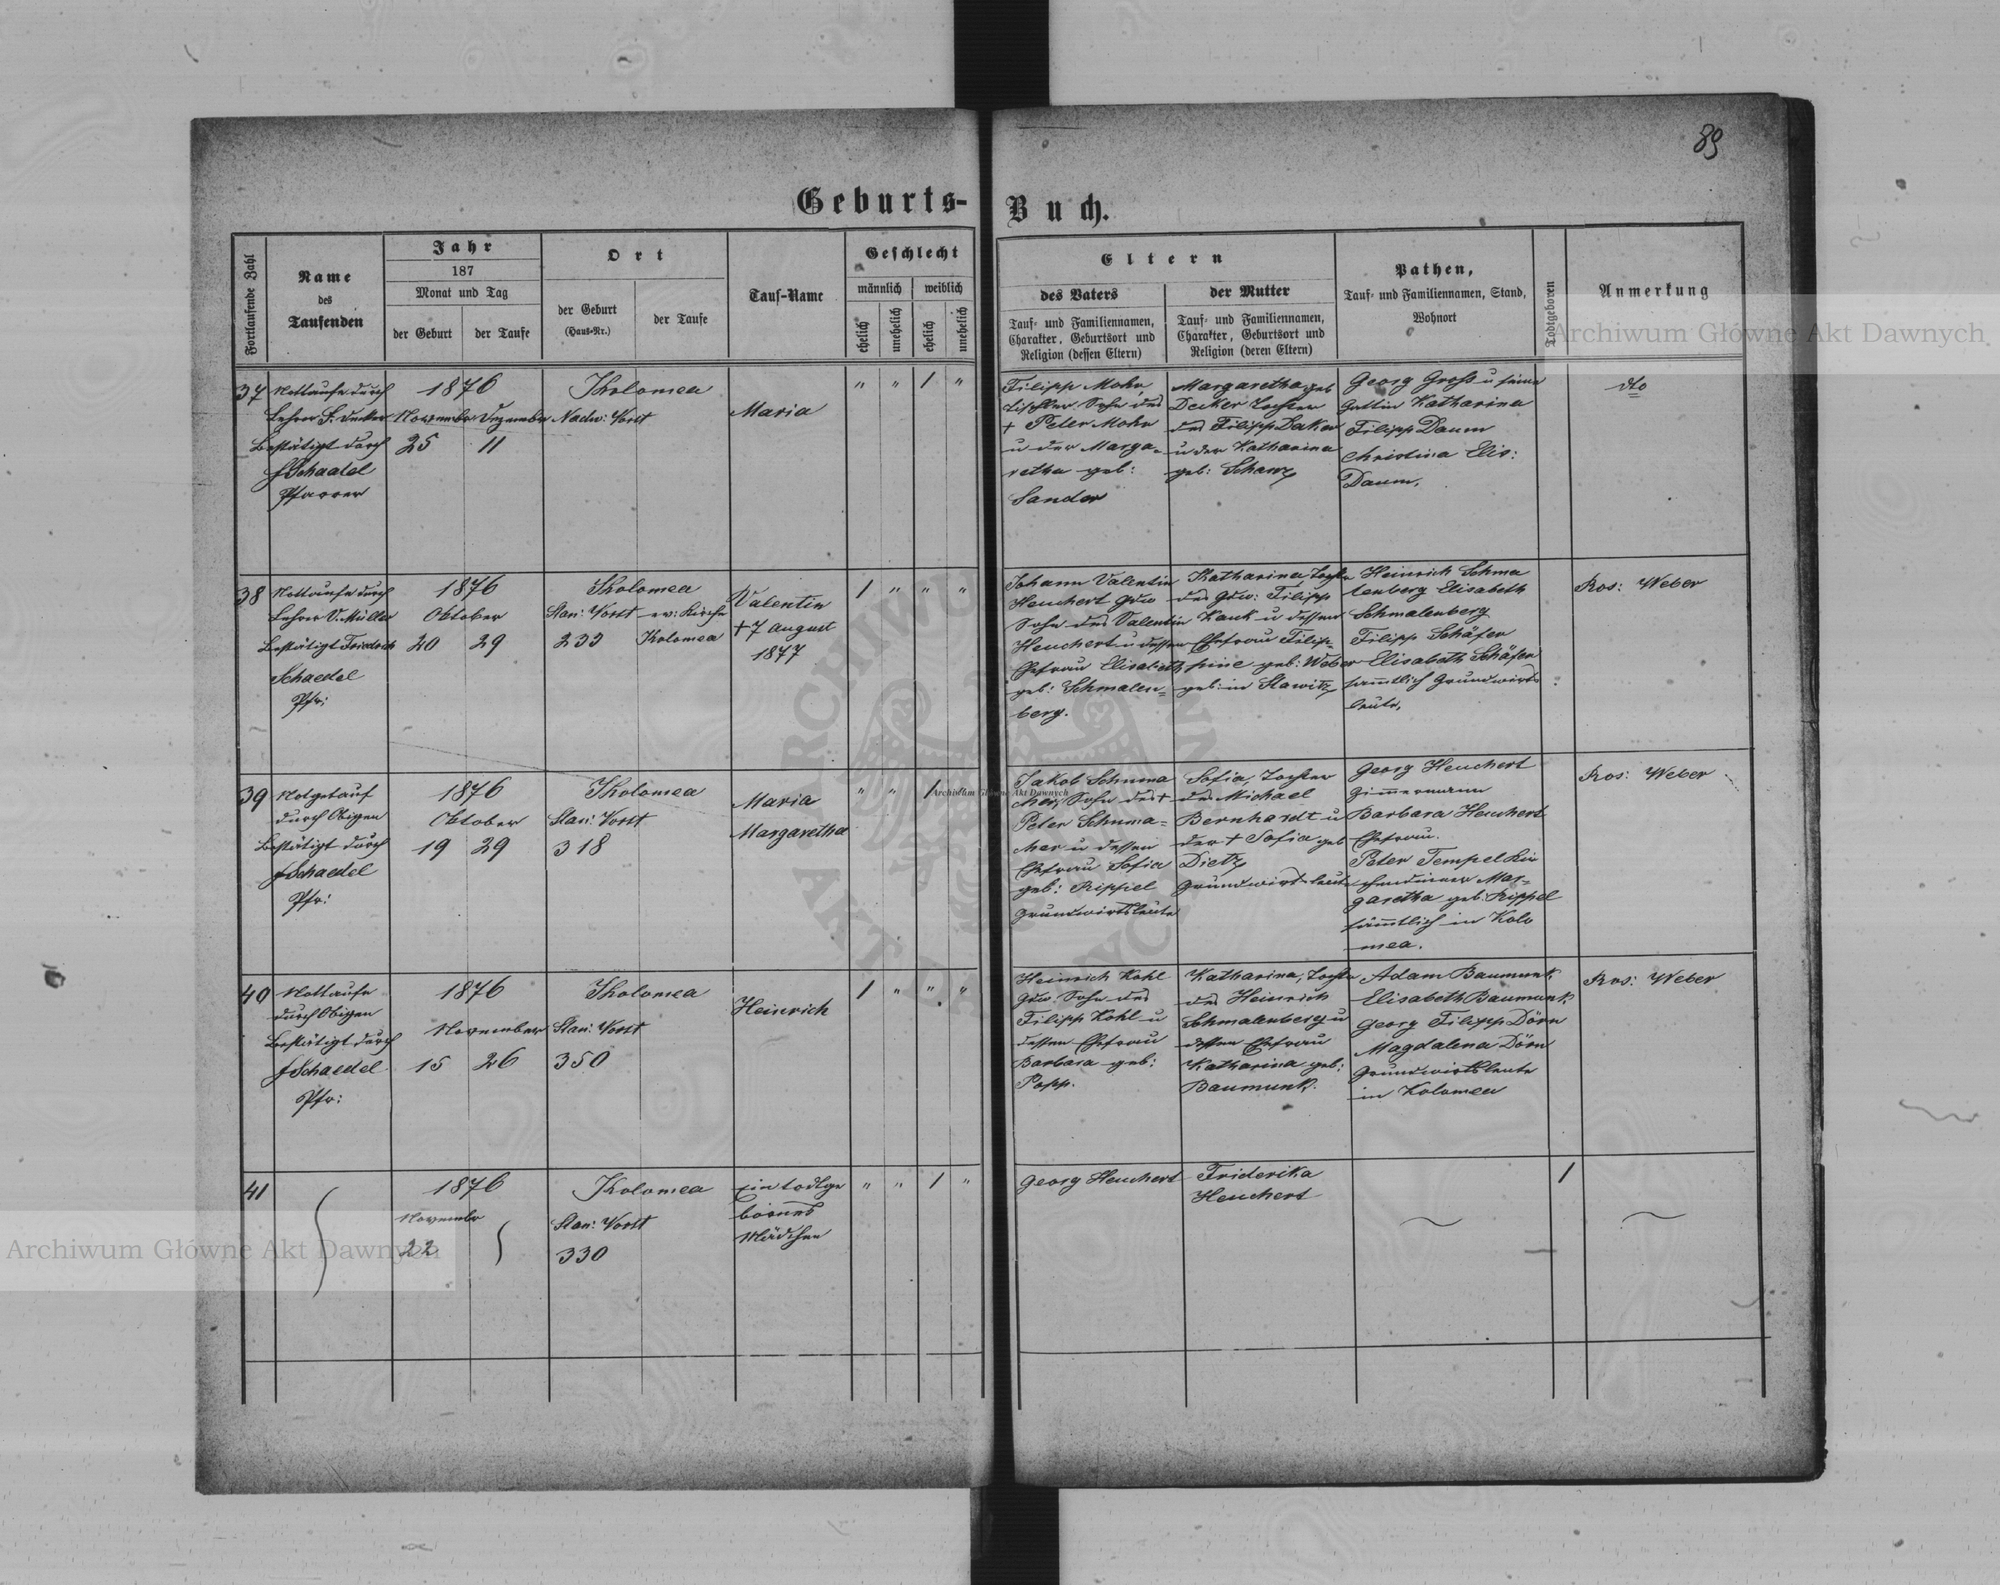 89
Geburts-Buch.
Fortlaufende Zahl
Name
des
Taufenden
Jahr
187
Monat und Tag
der Geburt
der Taufe
Ort
der Geburt
(Haus-Nr.)
der Taufe
Tauf-Name
Geschlecht
männlich
weiblich
ehelich
unehelich
ehelich
unehelich
Eltern
des Vaters
Tauf- und Familiennamen,
Charakter, Geburtsort und
Religion (dessen Eltern)
der Mutter
Tauf- und Familiennamen,
Charakter, Geburtsort und
Religion (deren Eltern)
Pathen,
Tauf- und Familiennamen, Stand,
Wohnort
Todtgeboren
Anmerkung
37
Nottaufe durch
Lehrer
Bestätigt durch
J Schaedel
Pfarrer
1876
November
Dezember
25
11
Kolomea
Nadw: Vorst
Maria
" " 1 "
Filipp Mohr,
Tischler, Sohn des
+ Peter Mohr
u der Marga=
retha geb:
Sander
Margaretha geb
Decker Tochter
des Filipp Deker
u der Katharina
geb: Schanz
Georg Groß u seine
Gattin Katharina
Filipp Daum
Christina Elis:
Daum.
dto
38
Nottaufe durch
Lehrer V. Müller
Bestätigt Friedrich
Schaedel
Pfr:
1876
Oktober
20
29
Kolomea
Stan: Vorst
ev: Kirche
233
Kolomea
Valentin
+ 7 August
1877
1 " " "
Johann Valentin
Heuchert Gdw
Sohn des Valentin
Heuchert u dessen
Ehefrau Elisabeth
geb: Schmalen=
berg.
Katharina Tochter
des Gdw: Filipp
Kauk u dessen
Ehefrau Filip=
pine geb: Weber
geb: in Slawitz
Heinrich Schma
lenberg Elisabeth
Schmalenberg
Filipp Schäfer
Elisabeth Schäfer
sammtlich Grundwirts
leute.
Ros: Weber
39
Notgetauf
durch Obigen
Bestätigt durch
J Schaedel
Pfr:
1876
Oktober
19
29
Kolomea
Stan: Vorst
318
Maria
Margaretha
" " 1
Jakob Schuma
cher, Sohn des +
Peter Schuma=
cher u dessen
Ehefrau Sofia
geb: Rippel
Grundwirtsleute
Sofia, Tochter
des Michael
Bernhardt u
der + Sofia geb
Dietz
Grundwirtsleute
Georg Heuchert
Zimmermann
Barbara Heuchert
Ehefrau.
Peter Tempel Kir
chendiener Mar=
garetha geb: Rippel
sämmtlich in Kolo
mea.
Ros: Weber
40
Nottaufe
durch Obigen
Bestätigt durch
J Schaedel
Pfr:
1876
November
15
26
Kolomea
Stan: Vorst
350
Heinrich
1 " " "
Heinrich Kohl
Gdw. Sohn des
Filipp Kohl u
dessen Ehefrau
Barbara geb:
Popp.
Katharina, Tochter
des Heinrich
Schmalenberg u
dessen Ehefrau
Katharina geb:
Baumunk.
Adam Baumunk,
Elisabeth Baumunk
Georg Filipp Dörn
Magdalena Dörn
Grundwirtsleute
in Kolomea
Ros: Weber
41
1876
November
22
Kolomea
Stan: Vorst
330
Ein todtge
bornes
Mädchen
" " 1 "
Georg Heuchert
Friderika
Heuchert
1
Archiwum Główne Akt Dawnych
Archiwum Główne Akt Dawnych
Archiwum Główne Akt Dawnych